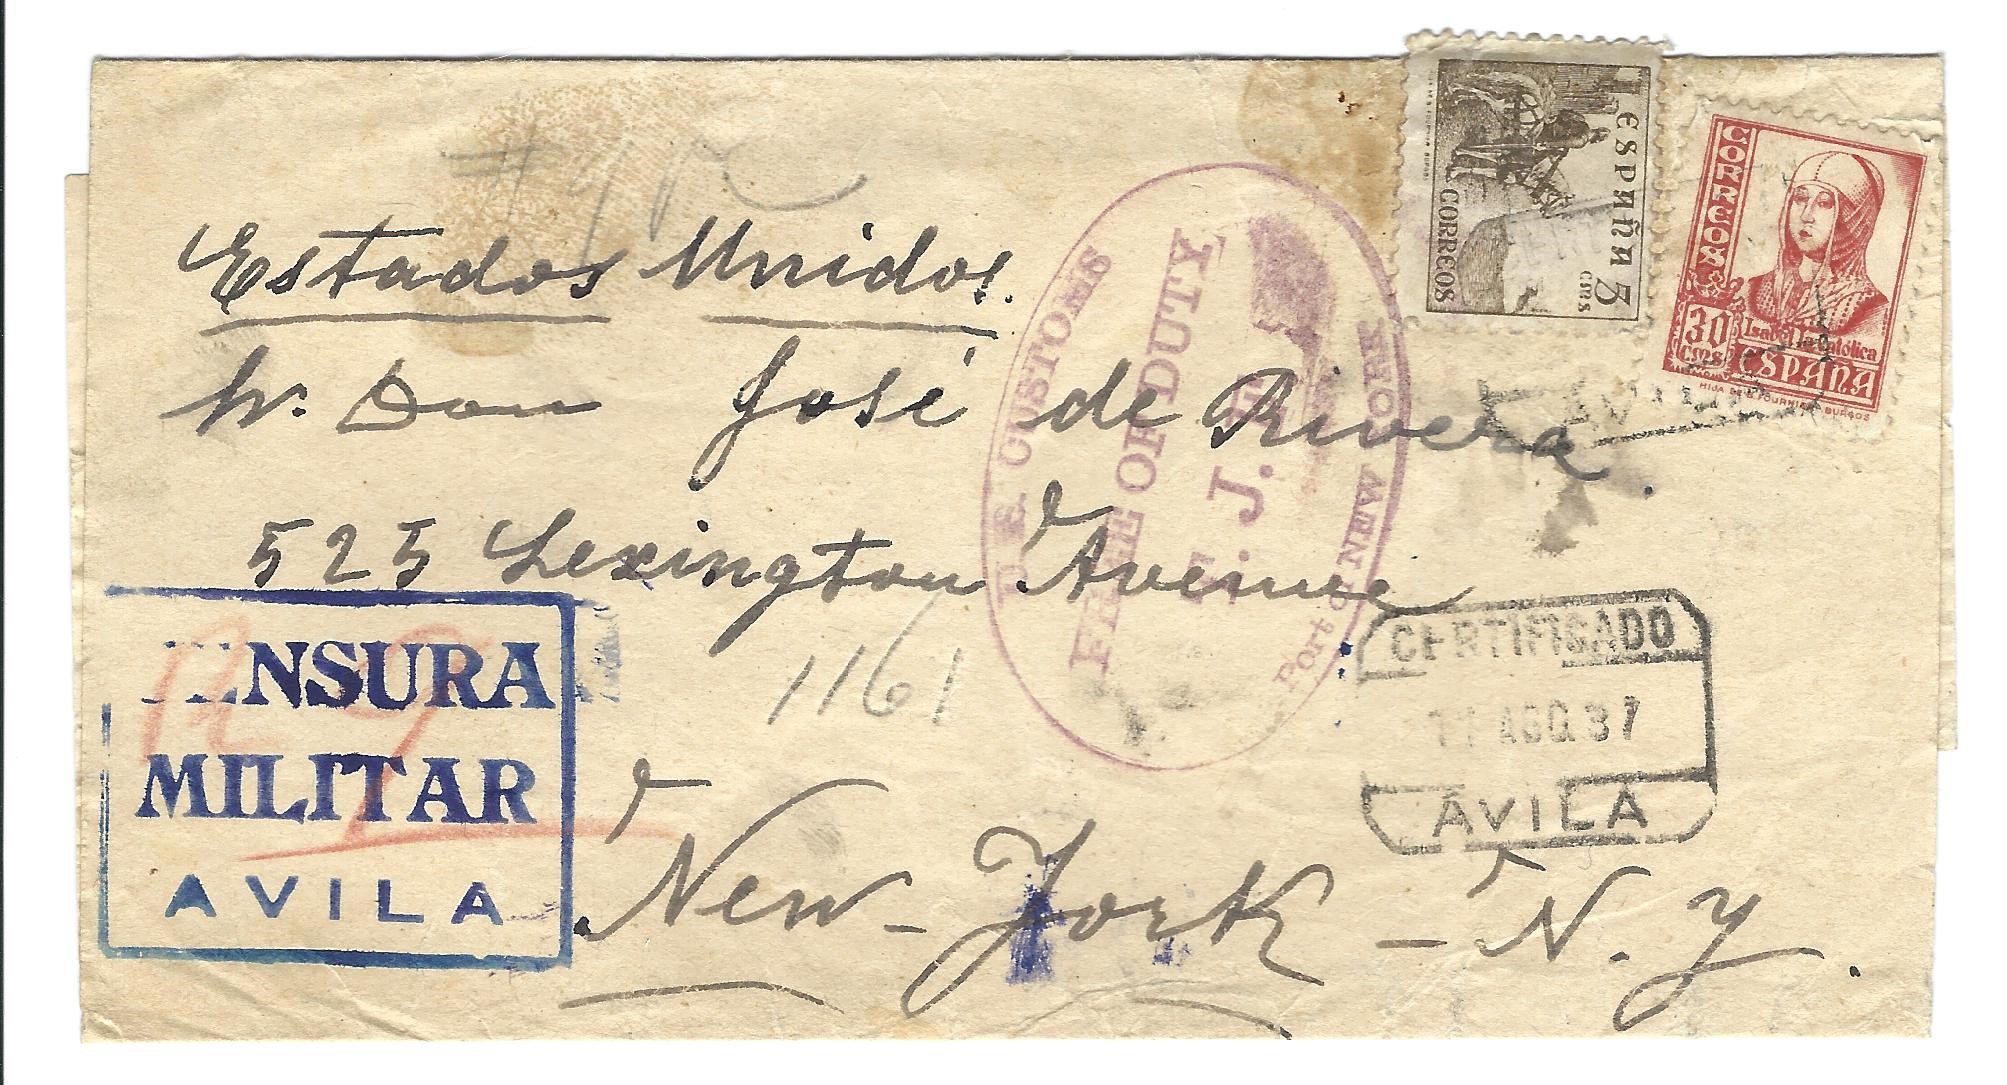 Estados Unidos.
Sr. Don José de Rivera.
525 Lexington Avenue
New-York - N.Y.
1161
CENSURA
MILITAR
AVILA
R 9
U. S. CUSTOMS
FREE OF DUTY
Port of NEW YORK
CERTIFICADO
11 AGO. 37
AVILA
ESPAÑA 5 CTS
CORREOS
CORREOS
30 CTS
Isabel la Católica
ESPAÑA
HIJA DE B. FOURNIER BURGOS